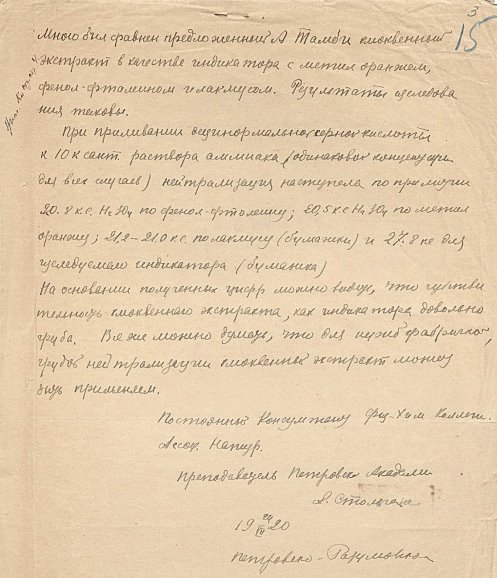 3
15
Мною был сравнен предложенный А Тамби клюквенный
экстракт в качестве индикатора с метил оранжем,
фенол-фталеином и лакмусом. Результаты исследова
ния таковы.
При приливании децинормальной серной кислоты
к 10 к сант. раствора аммиака (одинаковой концентрации
для всех случаев) нейтрализация наступала по прилитии
20.8 к.с. H₂SO₄ по фенол-фталеину; 20,5 к с H₂SO₄ по метил
оранжу; 21,2–21.0 к.с. по лакмусу (бумажки) и 27.8 кс для
исследуемого индикатора (бумажка)
На основании полученных цифр можно видеть, что чувстви
тельность клюквенного экстракта, как индикатора довольно
груба. Все же можно думать, что для нужд фабричной,
грубой нейтрализации клюквенный экстракт может
быть применяем.
Постоянный Консультант Физ-Хим Коллеги.
Ассоц. Натур.
преподаватель Петровск Академии
19 20
Петровско-Разумовское